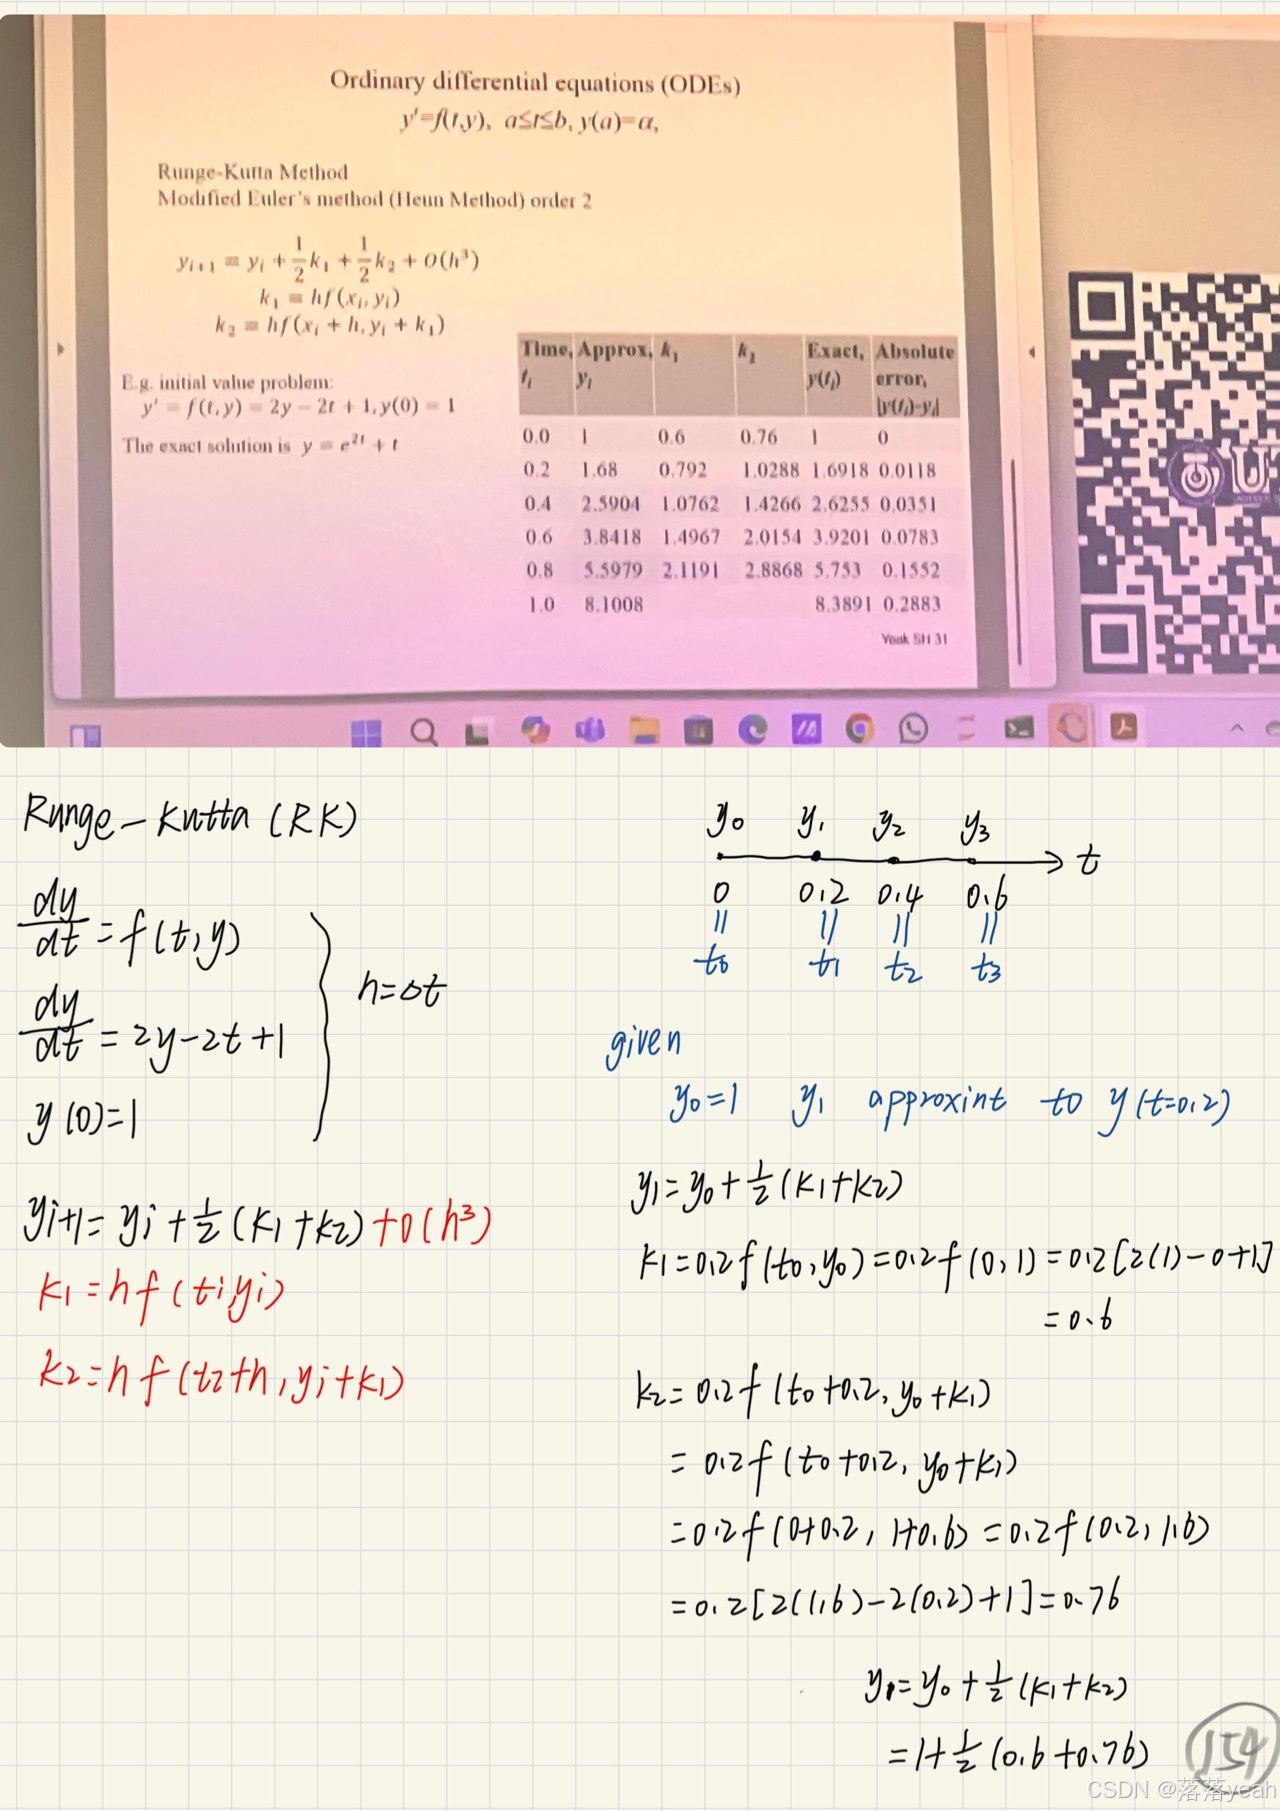 Ordinary differential equations (ODEs)
y'=f(t,y), a≤t≤b, y(a)=α,
Runge-Kutta Method
Modified Euler's method (Heun Method) order 2
yᵢ₊₁ = yᵢ + 1/2 k₁ + 1/2 k₂ + O(h³)
k₁ = hf(xᵢ, yᵢ)
k₂ = hf(xᵢ + h, yᵢ + k₁)
E.g. initial value problem:
y' = f(t, y) = 2y − 2t + 1, y(0) = 1
The exact solution is y = e²ᵗ + t
Time, tᵢ Approx, yᵢ k₁ k₂ Exact, y(tᵢ) Absolute error, |y(tᵢ)-yᵢ|
0.0 1 0.6 0.76 1 0
0.2 1.68 0.792 1.0288 1.6918 0.0118
0.4 2.5904 1.0762 1.4266 2.6255 0.0351
0.6 3.8418 1.4967 2.0154 3.9201 0.0783
0.8 5.5979 2.1191 2.8868 5.753 0.1552
1.0 8.1008 8.3891 0.2883
Yeak SH 31
U
Runge-Kutta (RK)
dy/dt = f(t,y)
dy/dt = 2y-2t+1
y(0)=1
h=Δt
yi+1 = yi + 1/2 (k1+k2) +O(h³)
k1 = hf(ti,yi)
k2 = hf(t2+h, yi+k1)
y0 y1 y2 y3
t
0 0.2 0.4 0.6
|| || || ||
t0 t1 t2 t3
given
y0=1 y1 approxint to y(t=0.2)
y1=y0+1/2(k1+k2)
k1=0.2f(t0,y0)=0.2f(0,1)=0.2[2(1)-0+1]
=0.6
k2=0.2f(t0+0.2,y0+k1)
=0.2f(t0+0.2,y0+k1)
=0.2f(0+0.2,1+0.6)=0.2f(0.2,1.6)
=0.2[2(1.6)-2(0.2)+1]=0.76
y1=y0+1/2(k1+k2)
=1+1/2(0.6+0.76)
154
CSDN @落落yeah